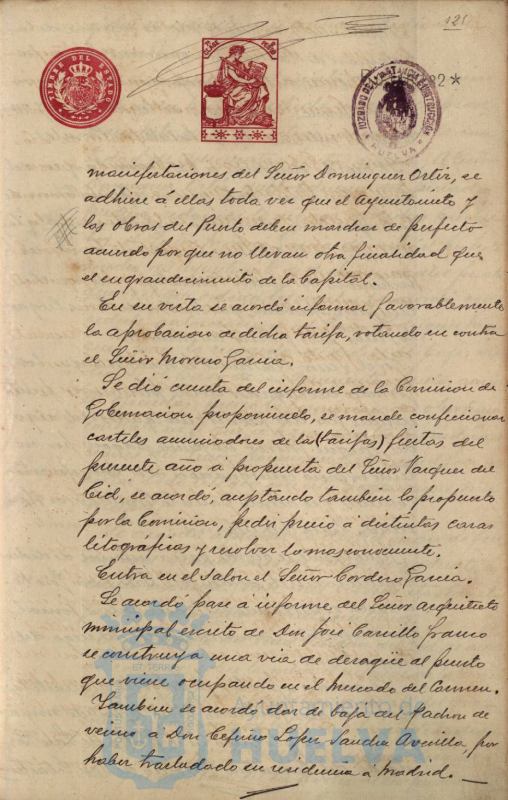 121
TIMBRE DEL ESTADO
JUZGADO DE 1ª INSTANCIA E INSTRUCCION
HUELVA
2*
manifestaciones del Señor Dominguez Ortiz, se
adhiere á ellas toda vez que el Ayuntamiento y
las Obras del Puerto deben marchar de perfecto
acuerdo por que no llevan otra finalidad que
el engrandecimiento de la Capital.
En su vista se acordó informar favorablemente
la aprobacion de dicha tarifa, votando en contra
el Señor Moreno Garcia.
Se dió cuenta del informe de la Comision de
Gobernacion proponiendo, se mande confeccionar
carteles anunciadores de las (tarifas) fiestas del
presente año á propuesta del Señor Vazquez del
Cid, se acordó, aceptando tambien lo propuesto
por la Comision, pedir precio á distintas casas
litográficas y resolver lo mas conveniente.
Entra en el salon el Señor Cordero Garcia.
Se acordó pase á informe del Señor Arquitecto
municipal escrito de Don José Carrillo Franco
se construya una via de desagüe al puesto
que viene ocupando en el Mercado del Carmen.
Tambien se acordó dar de baja del Padron de
vecinos á Don Ceferino Lopez Sanchez Avecilla por
haber trasladado su residencia á Madrid.
Ayuntamiento de
HUELVA